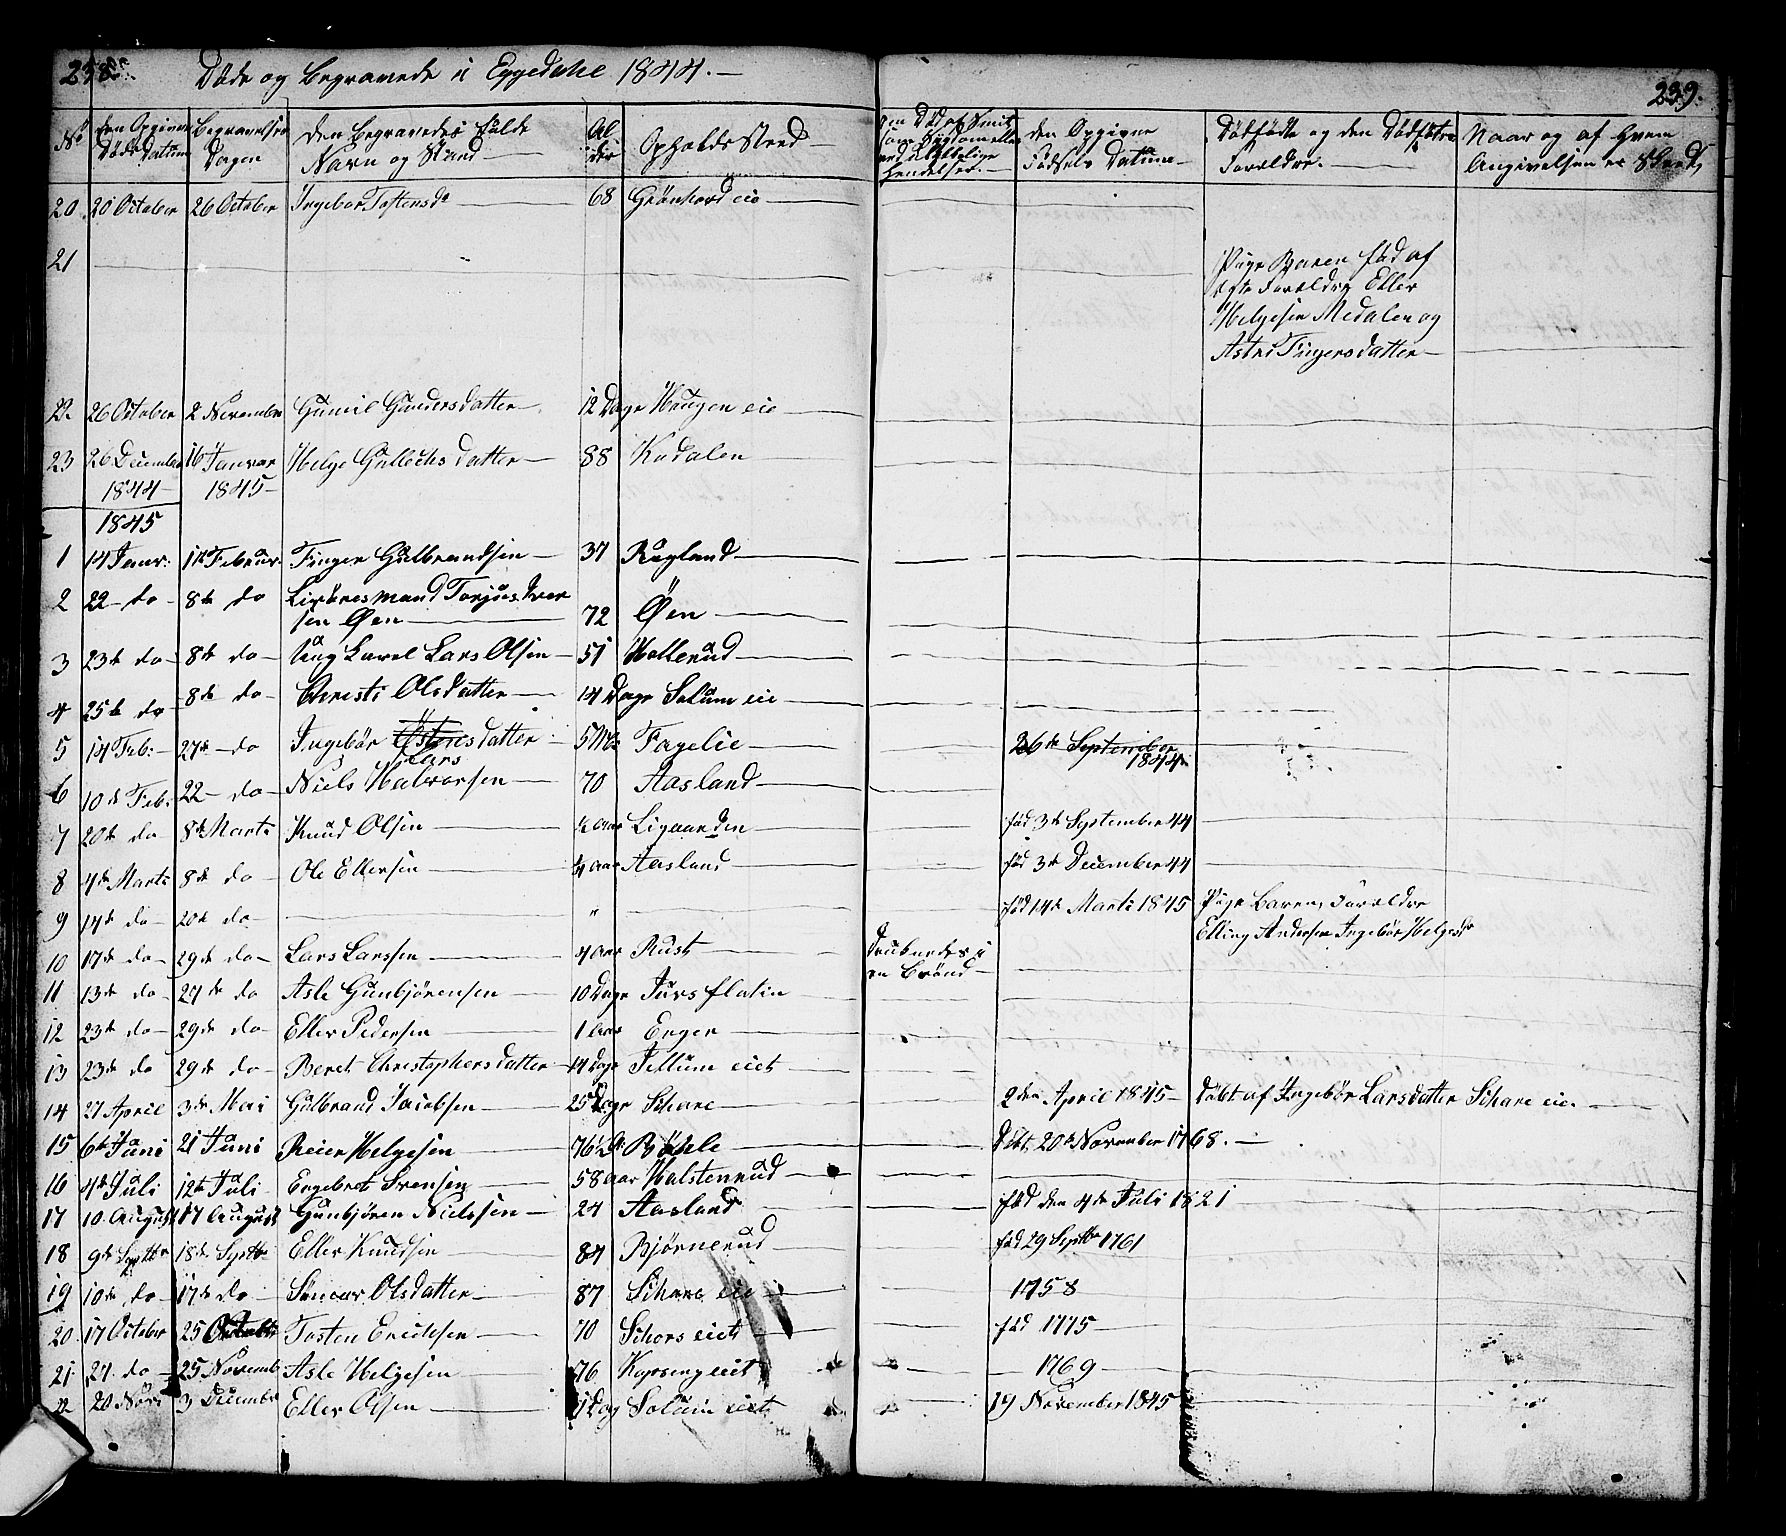 238.
Døde og Begravede i Eggedahl 1844.—
239.
No
den Opgivne Døds Datum
Begravelses Dagen
Den Begravedes fulde Navn og Stand—
Alder
Opholds Sted—
den Opgivne Fødsels Datum—
Dødfødte og den Dødfødtes Forældre.—
Naar og af hvem Angivelsen er Skeed
20 20 October 26 October Ingebor Tostensdr 68 Grønhovd eie—
21 Pige Barn fød af
ægte Forældre Eller
Helgesen Medalen og
Astri Fingersdatter—
22 26 October 2 November Gunil Gundersdatter— 12 Dage Haugen eie
23 26 December 16 Januar Helge Gullechsdatter— 88 Kadalen
1844— 1845—
1845
1 14 Janr: 1te Februar Finger Gulbrandsen— 37 Rugland—
2 22— do— 8de do Torjus Iver
sen Øen— 72 Øen—
3 23de do— 8de do— Ung Karl Lars Olsen— 51 Hollerud—
4 25de do 8de do— Christi Olsdatter— 14 Dage Solum eie
5 14 Feb:— 27de— do Ingebør Østensdatter 5 Mdr Fagelie— 26de September
Lars 1844
6 10de Feb: 22— do— Niels Halvorsen— 70 Aasland—
7 20de do 8de Marts Knud Olsen— ½ Aar Ligaarden— fød 3de September 44
8 4de Marts 8de do— Ole Ellersen ¼ Aar Aasland fød 3de December 44
9 14de do— 20de do— " fød 14de Marts 1845 Pige Barn, Forældre
Elling Andersen Ingebør Helgesdr
10 17de do— 29de do— Lars Larssen— 4 Aar Rust— Druknede i
en Brønd—
11 13de do— 27de do Asle Gunbjørensen— 10 Dage Jursflatin
12 23de do— 29de do— Eller Pedersen— 1 Aar Enger—
13 23de do 29de do— Beret Christophersdatter— 14 Dage Tellum eiet—
14 27 April 3de Mai Gulbrand Jacobsen— 25 Dage Schare— 2den April 1845— Døbt af Ingebør Larsdatter Schare eie.—
15 6te Juni 21 Juni Reier Helgesen— 76½ Bøsele Døbt 20de November 1768.—
16 4de Juli 12te Juli Engebret Svensen— 58 Aar Halstenrud—
17 10 August 17 August Gunbjøren Nielssen— 24 Aasland fød den 4de Juli 1821
18 9de Septbr 18de Septbr Eller Knudsen— 84 Bjørnerud— fød 29 Septbr 1761
19 10de do— 17de do— Olsdatter— 87 Schare eie 1758
20 17 October 25 October Tosten Erichsen— 70 Schars eiet fød 1775—
21 24 do— 25 Novemb Asle Helgesen— 76 eiet 1769—
22 20 Nov: 3 December Eller Olsen— 1 Dag Solum eiet 19 November 1845